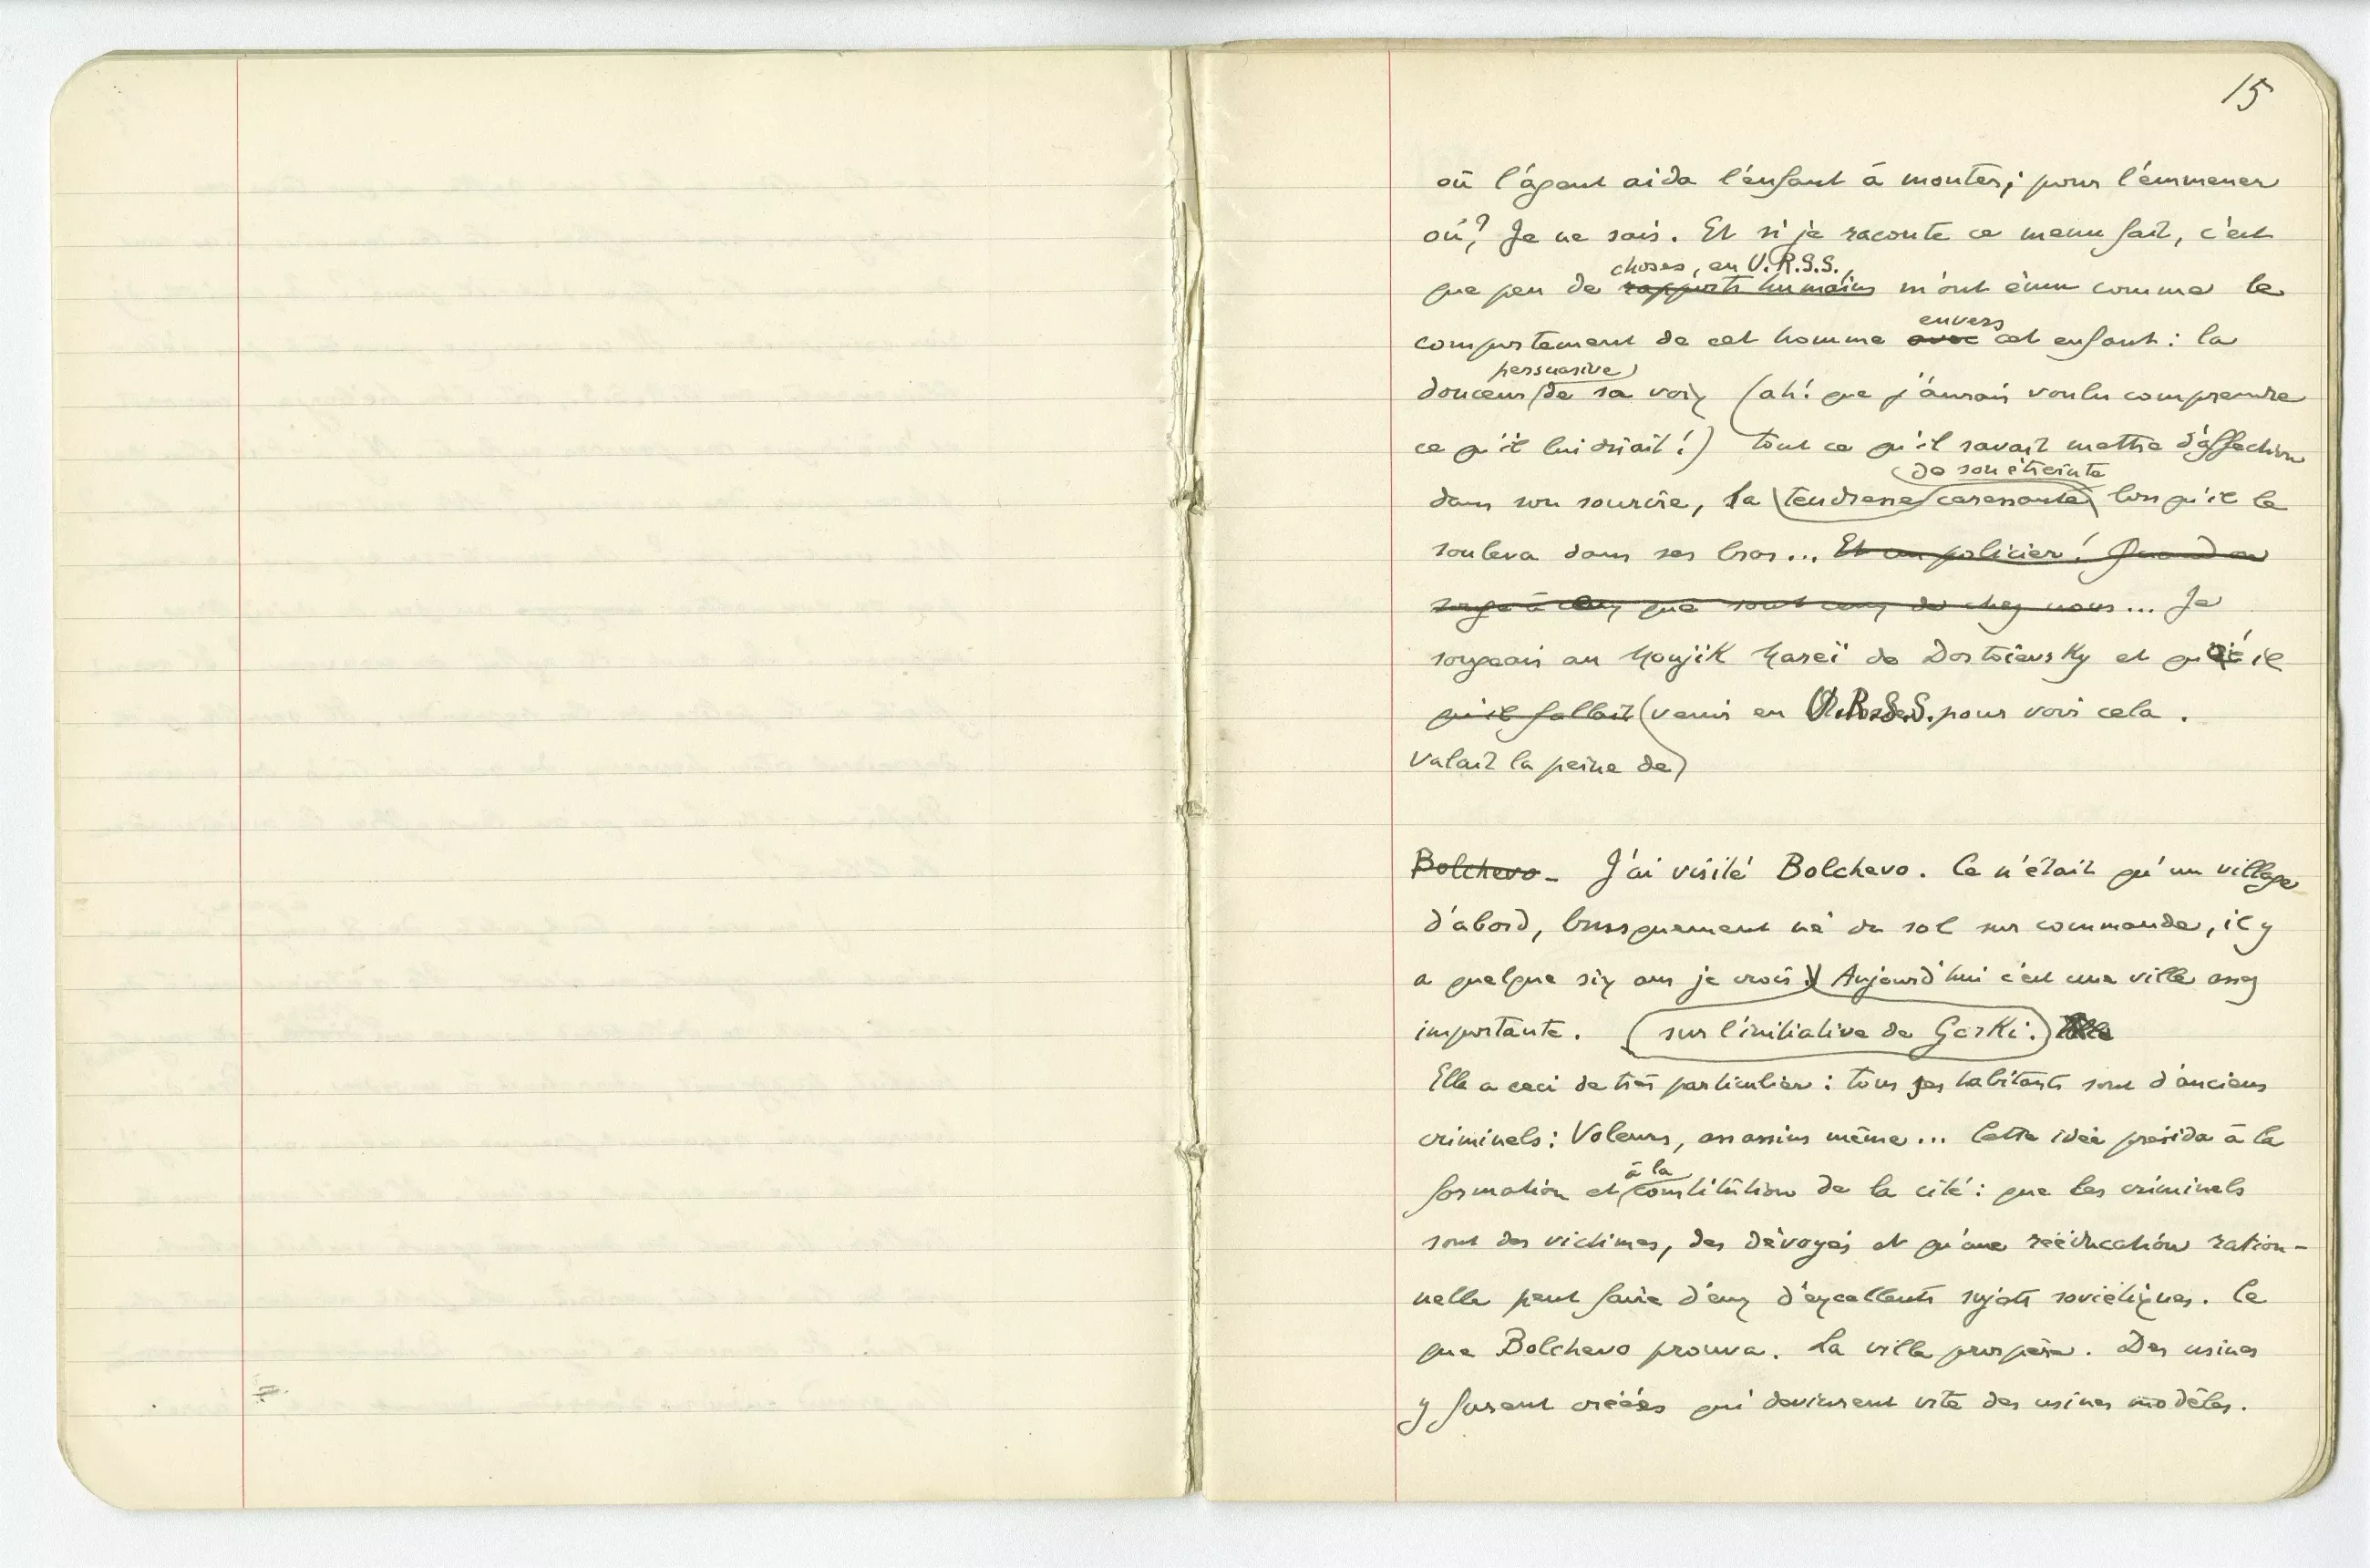 15
où l'agent aida l'enfant à monter; pour l'emmener
où? Je ne sais. Et si je raconte ce menu fait, c'est
choses, en U.R.S.S.,
que peu de rapports humains m'ont ému comme le
envers
comportement de cet homme avec cet enfant : la
persuasive
douceur de sa voix (ah! que j'aurais voulu comprendre
ce qu'il lui disait!) tout ce qu'il savait mettre d'affection
de son étreinte
dans son sourire, la tendresse caressante lorsqu'il le
souleva dans ses bras... Et un policier! Quand on
songe à ce que sont ceux de chez nous... Je
songeais au Moujik Mareï de Dostoïevsky et qu'il
qu'il fallait venir en U.R.S.S. pour voir cela.
valait la peine de
Bolchevo - J'ai visité Bolchevo. Ce n'était qu'un village
d'abord, brusquement né du sol sur commande, il y
a quelque six ans je crois. Aujourd'hui c'est une ville assez
importante. sur l'initiative de Gorki.
Elle a ceci de très particulier : tous ses habitants sont d'anciens
criminels : Voleurs, assassins même... Cette idée présida à la
à la
formation et constitution de la cité : que les criminels
sont des victimes, des dévoyés et qu'une rééducation ration-
nelle peut faire d'eux d'excellents sujets soviétiques. Ce
que Bolchevo prouva. La ville prospère. Des usines
y furent créées qui devinrent vite des usines modèles.